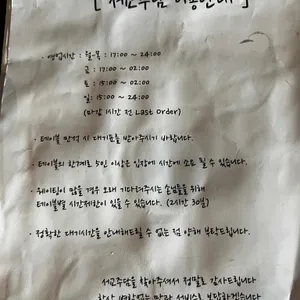 [ 서교주담 이용안내 ]
· 영업시간 : 월-목 : 17:00 ~ 24:00
금 : 17:00 ~ 02:00
토 : 15:00 ~ 02:00
일 : 15:00 ~ 24:00
(마감 1시간 전 Last Order)
· 테이블 만석 시 대기표를 받아주시기 바랍니다.
· 테이블의 한계로 5인 이상은 입장에 시간에 소요 될 수 있습니다.
· 웨이팅이 많을 경우 오래 기다려주시는 손님들을 위해
테이블별 시간제한이 있을 수 있습니다. (2시간 30분)
· 정확한 대기시간을 안내해드릴 수 없는 점 양해 부탁드립니다.
서교주담을 찾아주셔서 정말로 감사드립니다
항상 변함없는 맛과 서비스로 보답하겠습니다